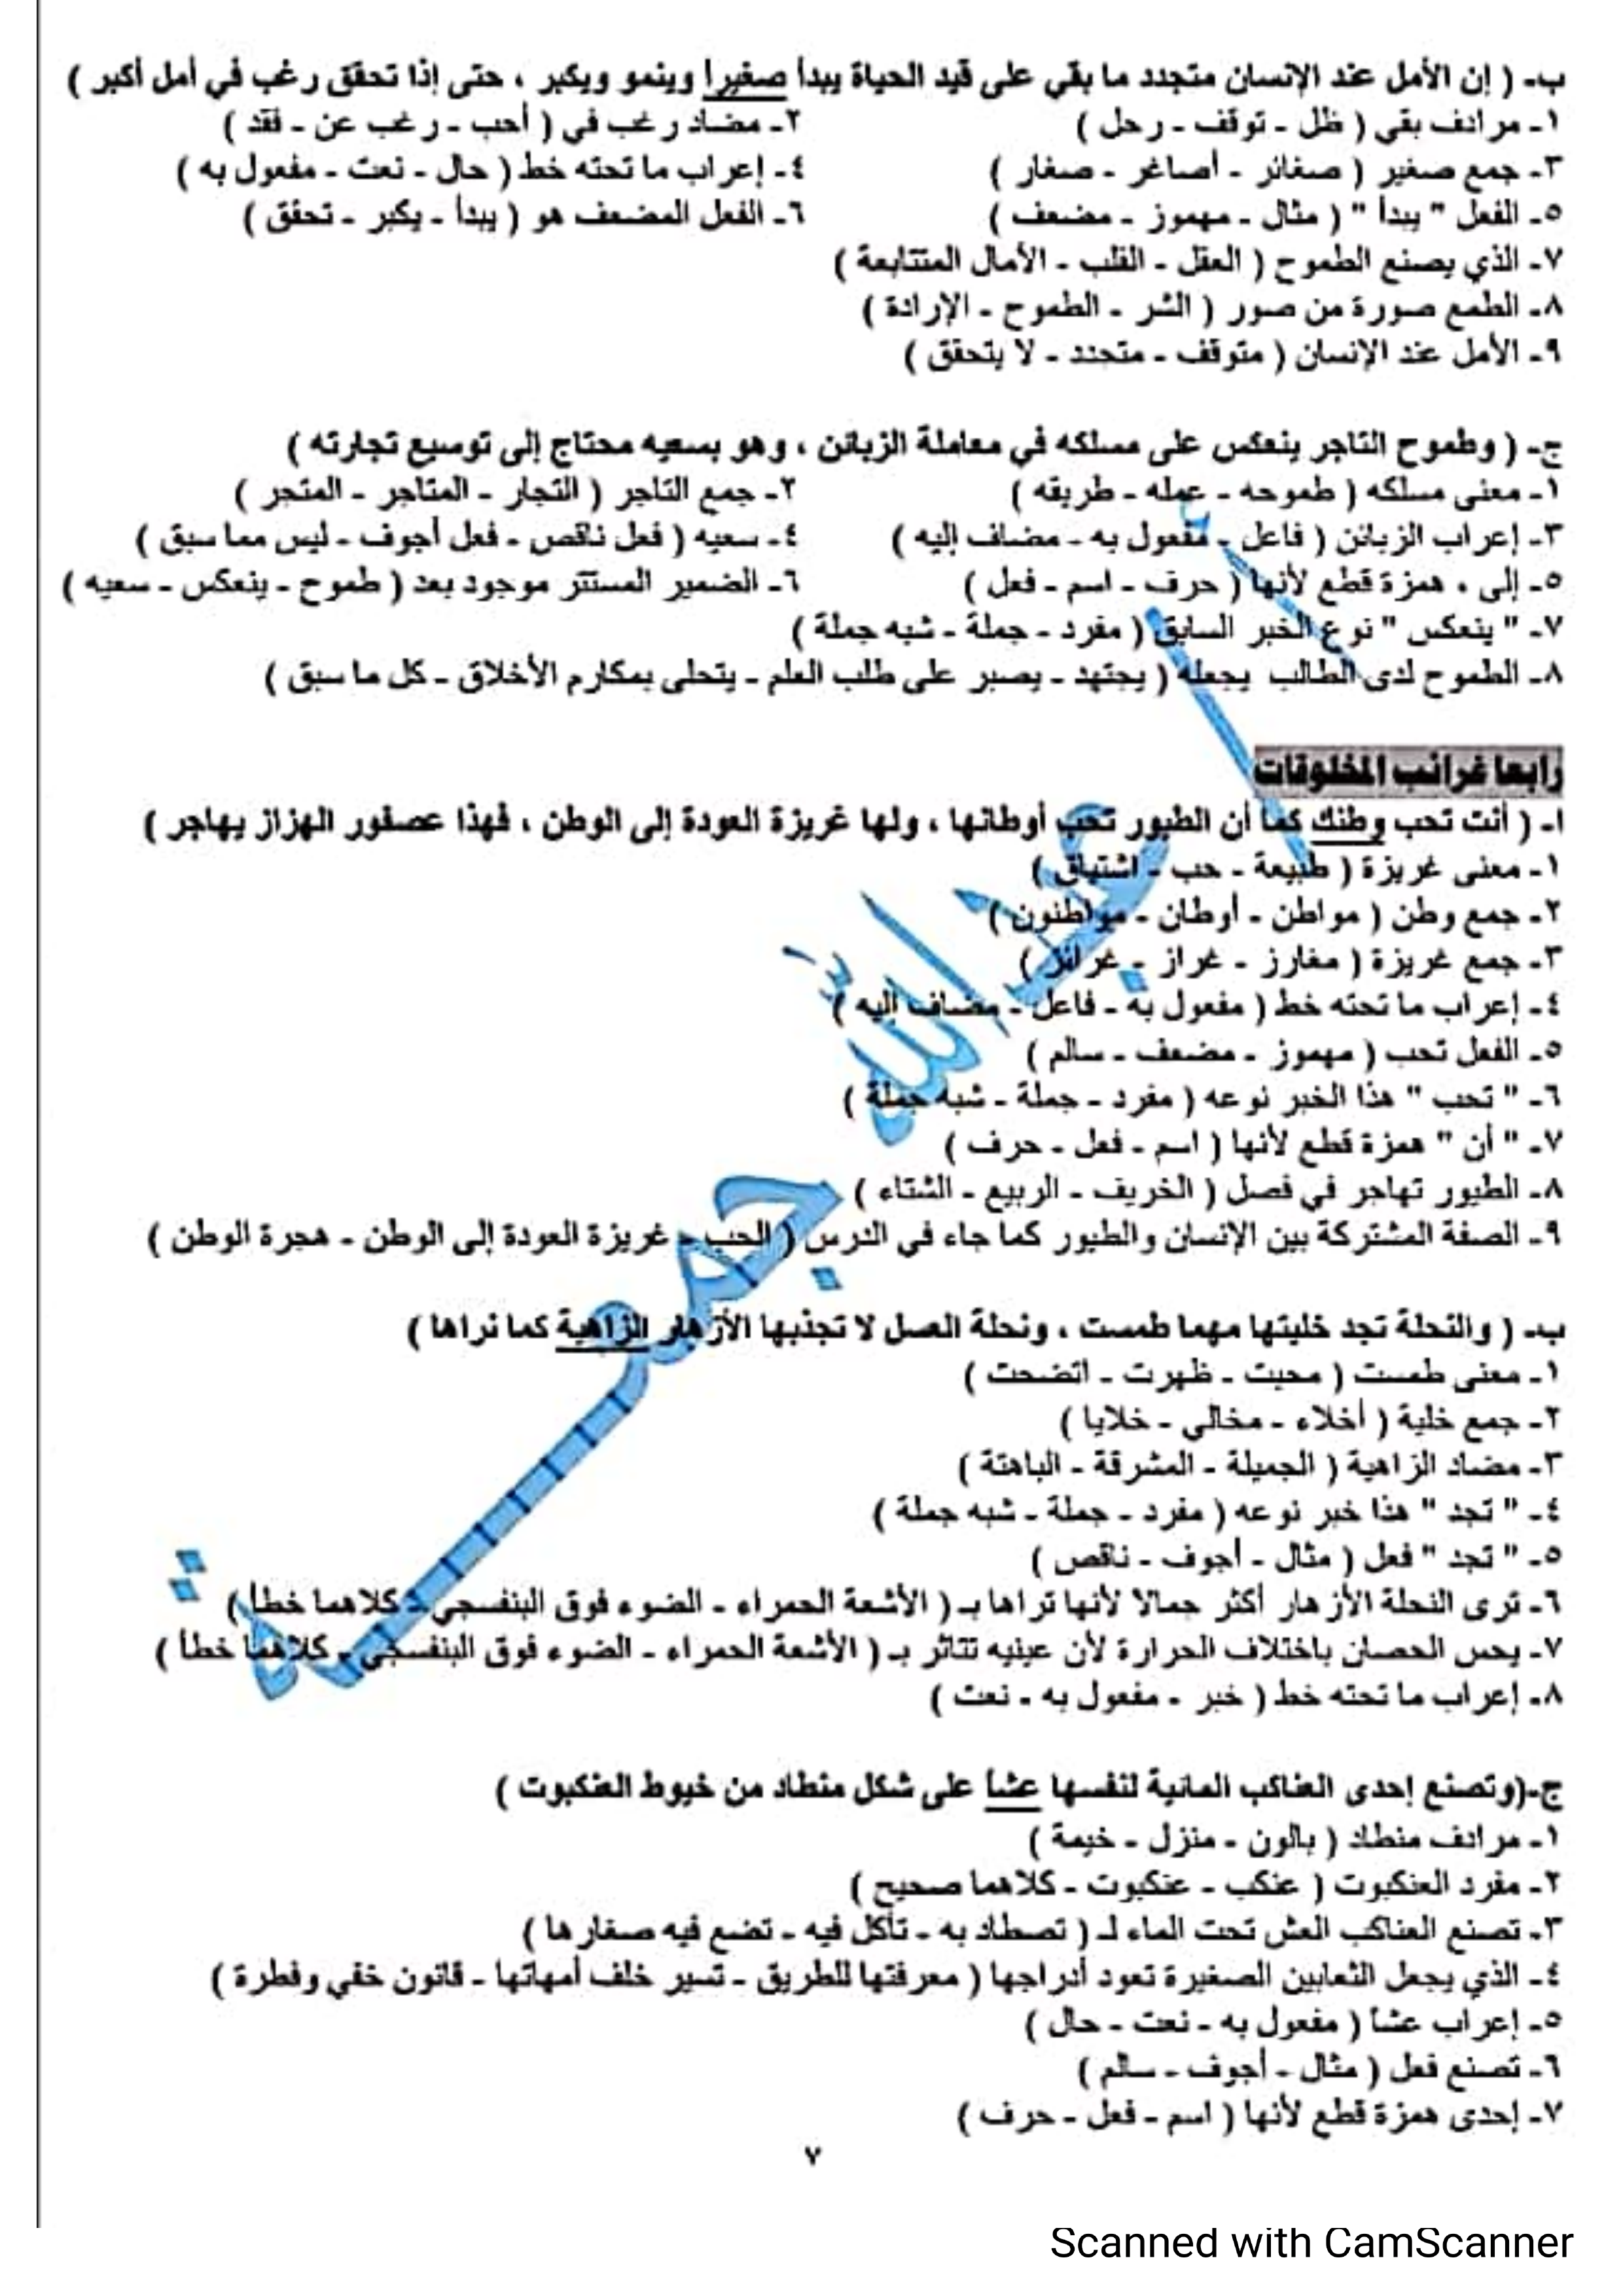 ب- ( إن الأمل عند الإنسان متجدد ما بقي على قيد الحياة يبدأ صغيرا وينمو ويكبر ، حتى إذا تحقق رغب في أمل أكبر )
١- مرادف بقي ( ظل - توقف - رحل ) ٢- مضاد رغب في ( أحب - رغب عن - فقد )
٣- جمع صغير ( صغائر - أصاغر - صغار ) ٤- إعراب ما تحته خط ( حال - نعت - مفعول به )
٥- الفعل " يبدأ " ( مثال - مهموز - مضعف ) ٦- الفعل المضعف هو ( يبدأ - يكبر - تحقق )
٧- الذي يصنع الطموح ( العقل - القلب - الأمال المتتابعة )
٨- الطمع صورة من صور ( الشر - الطموح - الإرادة )
٩- الأمل عند الإنسان ( متوقف - متجدد - لا يتحقق )
ج- ( وطموح التاجر ينعكس على مسلكه في معاملة الزبائن ، وهو بسعيه محتاج إلى توسيع تجارته )
١- معنى مسلكه ( طموحه - عمله - طريقه ) ٢- جمع التاجر ( التجار - المتاجر - المتجر )
٣- إعراب الزبائن ( فاعل - مفعول به - مضاف إليه ) ٤- سعيه ( فعل ناقص - فعل أجوف - ليس مما سبق )
٥- إلى ، همزة قطع لأنها ( حرف - اسم - فعل ) ٦- الضمير المستتر موجود بعد ( طموح - ينعكس - سعيه )
٧- " ينعكس " نوع الخبر السابق ( مفرد - جملة - شبه جملة )
٨- الطموح لدى الطالب يجعله ( يجتهد - يصبر على طلب العلم - يتحلى بمكارم الأخلاق - كل ما سبق )
رابعا غرائب المخلوقات
ا- ( أنت تحب وطنك كما أن الطيور تحب أوطانها ، ولها غريزة العودة إلى الوطن ، فهذا عصفور الهزاز يهاجر )
١- معنى غريزة ( طبيعة - حب - اشتياق )
٢- جمع وطن ( مواطن - أوطان - مواطنون )
٣- جمع غريزة ( مغارز - غراز - غرائز )
٤- إعراب ما تحته خط ( مفعول به - فاعل - مضاف إليه )
٥- الفعل تحب ( مهموز - مضعف - سالم )
٦- " تحب " هذا الخبر نوعه ( مفرد - جملة - شبه جملة )
٧- " أن " همزة قطع لأنها ( اسم - فعل - حرف )
٨- الطيور تهاجر في فصل ( الخريف - الربيع - الشتاء )
٩- الصفة المشتركة بين الإنسان والطيور كما جاء في الدرس ( الحب - غريزة العودة إلى الوطن - هجرة الوطن )
ب- ( والنحلة تجد خليتها مهما طمست ، ونحلة العسل لا تجذبها الأزهار الزاهية كما نراها )
١- معنى طمست ( محيت - ظهرت - اتضحت )
٢- جمع خلية ( أخلاء - مخالي - خلايا )
٣- مضاد الزاهية ( الجميلة - المشرقة - الباهتة )
٤- " تجد " هذا خبر نوعه ( مفرد - جملة - شبه جملة )
٥- " تجد " فعل ( مثال - أجوف - ناقص )
٦- ترى النحلة الأزهار أكثر جمالا لأنها تراها بـ ( الأشعة الحمراء - الضوء فوق البنفسجي - كلاهما خطأ )
٧- يحس الحصان باختلاف الحرارة لأن عينيه تتاثر بـ ( الأشعة الحمراء - الضوء فوق البنفسجي - كلاهما خطأ )
٨- إعراب ما تحته خط ( خبر - مفعول به - نعت )
ج-(وتصنع إحدى العناكب المائية لنفسها عشا على شكل منطاد من خيوط العنكبوت )
١- مرادف منطاد ( بالون - منزل - خيمة )
٢- مفرد العنكبوت ( عنكب - عنكبوت - كلاهما صحيح )
٣- تصنع العناكب العش تحت الماء لـ ( تصطاد به - تأكل فيه - تضع فيه صغارها )
٤- الذي يجعل الثعابين الصغيرة تعود أدراجها ( معرفتها للطريق - تسير خلف أمهاتها - قانون خفي وفطرة )
٥- إعراب عشا ( مفعول به - نعت - حال )
٦- تصنع فعل ( مثال - أجوف - سالم )
٧- إحدى همزة قطع لأنها ( اسم - فعل - حرف )
٧
أ / عبد الله جمعة
Scanned with CamScanner